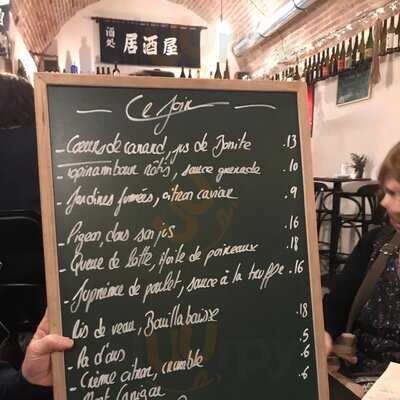 酒処 居酒屋
Ce soir
- Cœurs de canard, jus de Bonite .13
- Topinambour rôtis, sauce grenade .10
- Sardines fumées, citron caviar .9
- Pigeon, dans son jus .16
- Queue de lotte, étoile de poireaux .18
- Suprème de poulet, sauce à la truffe .16
- Ris de veau, Bouillabaisse .18
- Pa d'ous .5
- Crème citron, crumble .6
- Mont Canigou .6